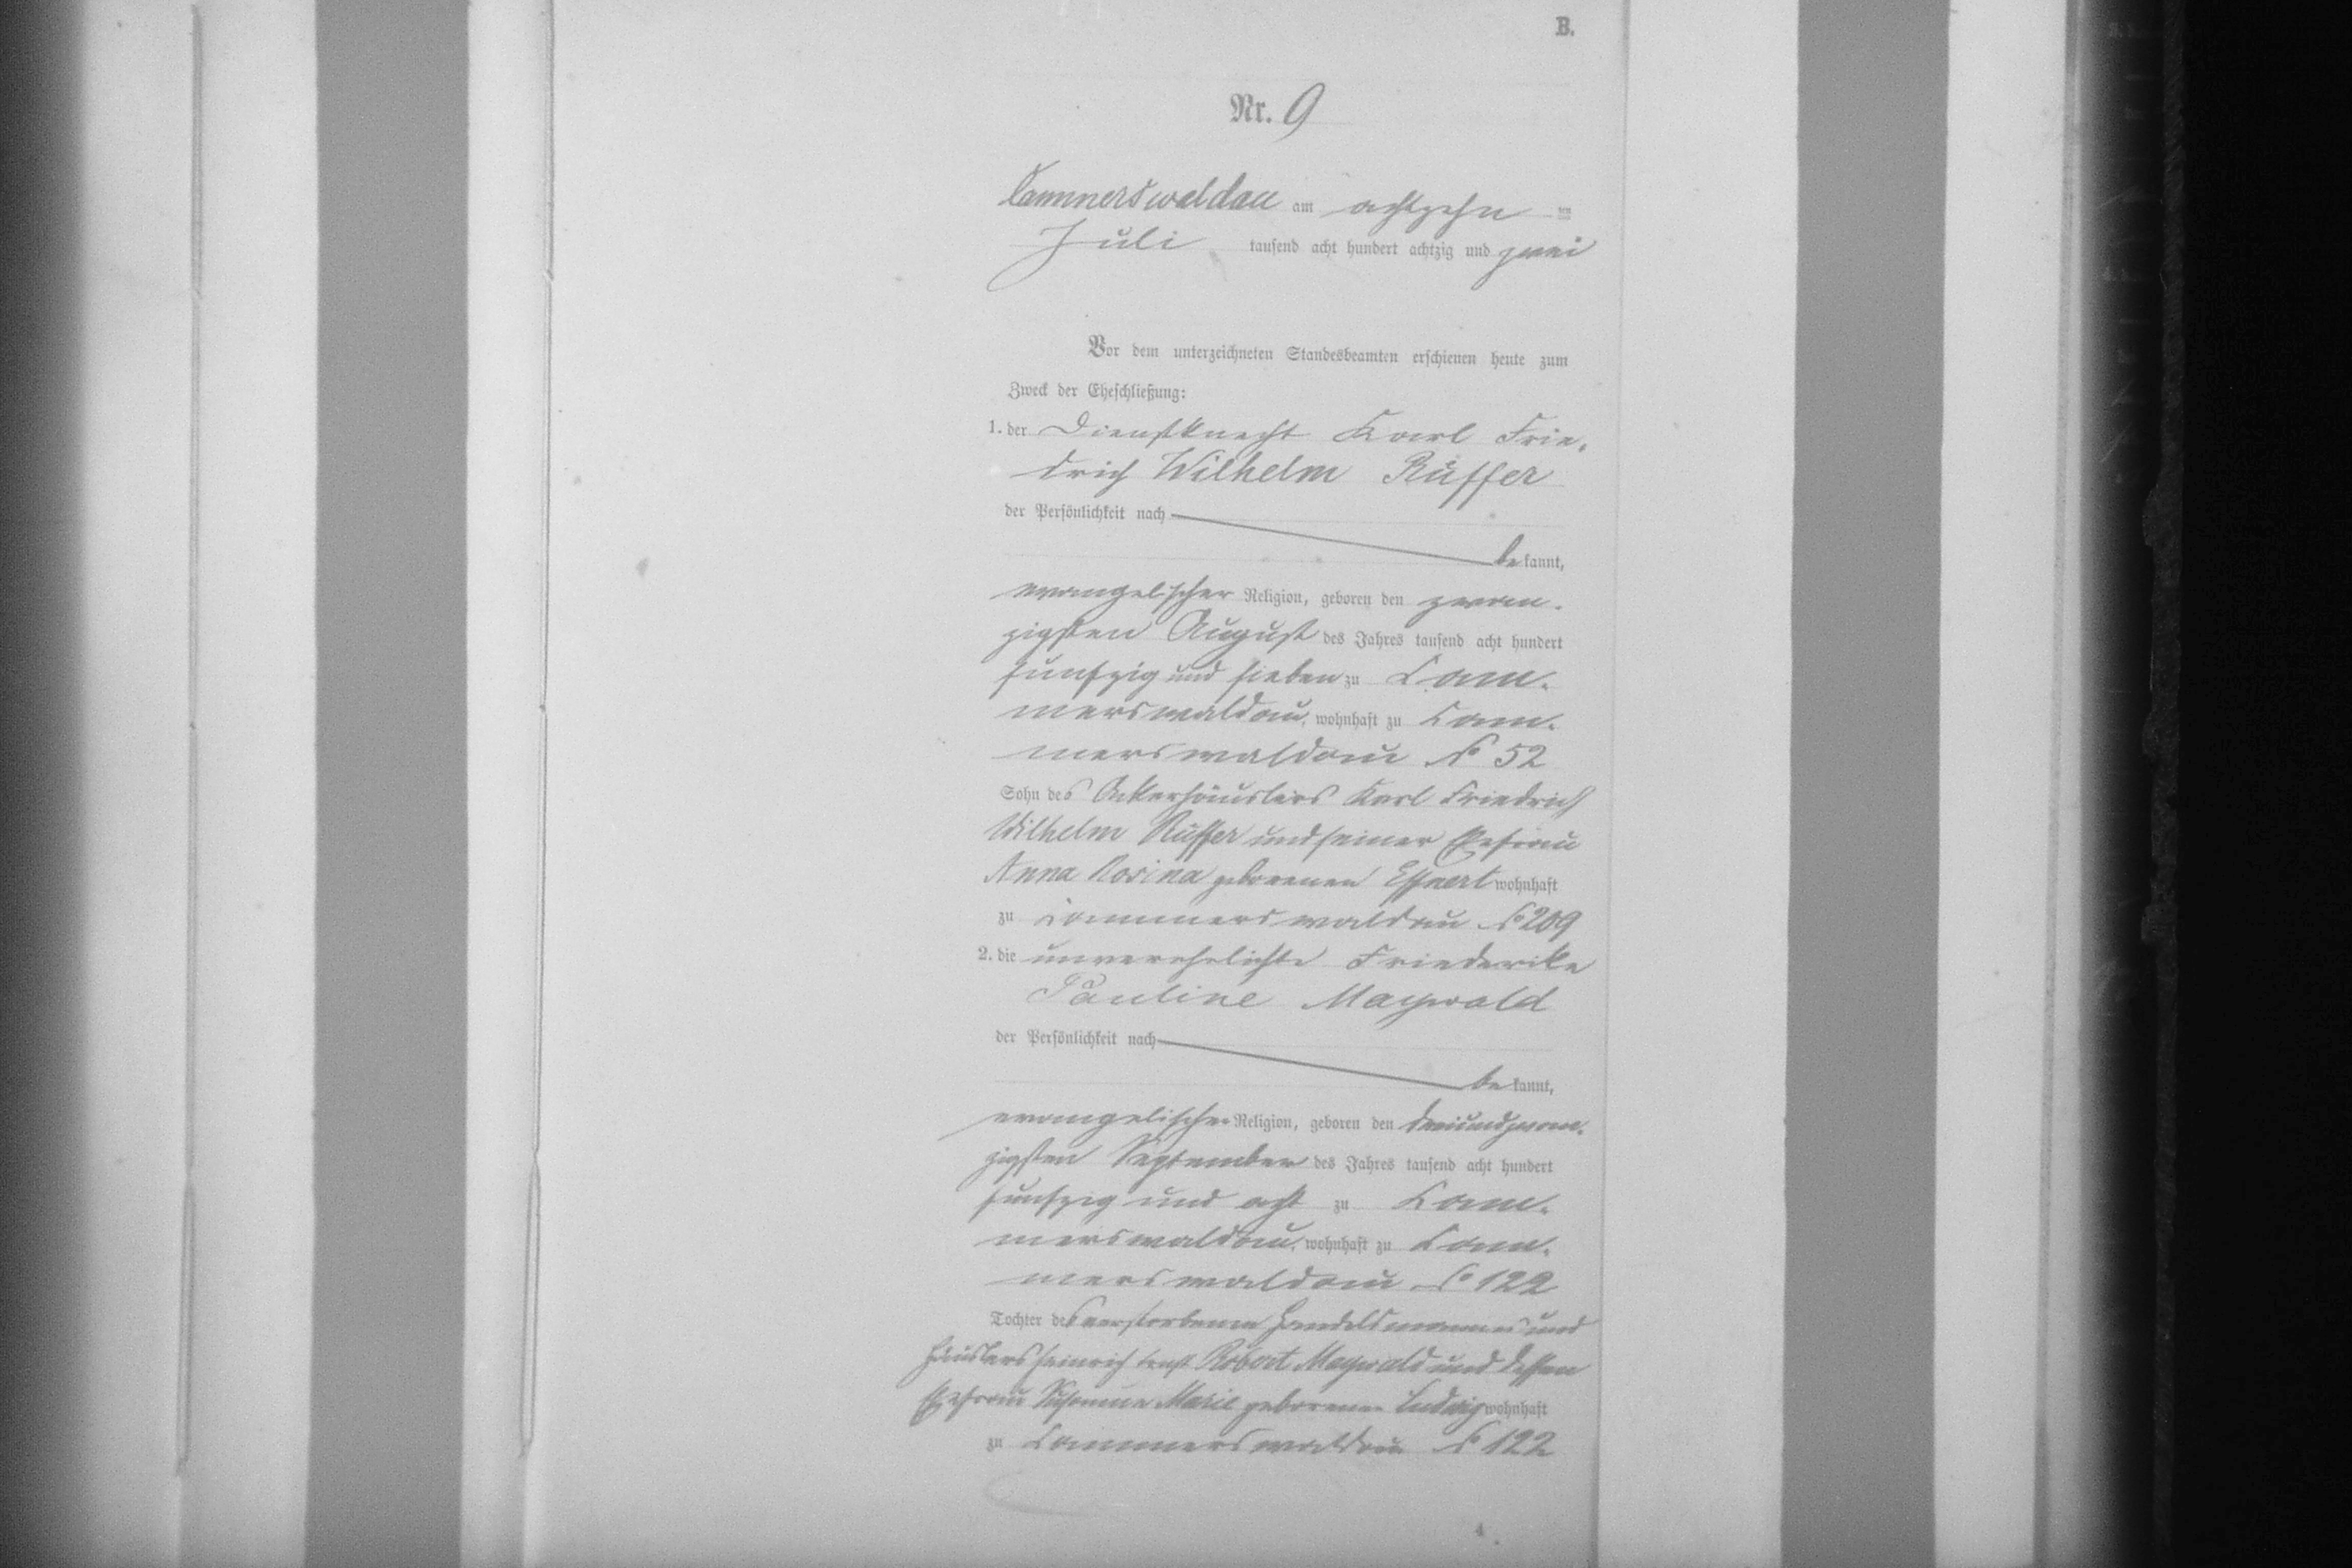 B.
Nr. 9
Cammerswaldau am achtzehn ten
Juli tausend acht hundert achtzig und zwei
Vor dem unterzeichneten Standesbeamten erschienen heute zum
Zweck der Eheschließung:
1. der Dienstknecht Karl Frie-
drich Wilhelm Rüffer
der Persönlichkeit nach
be kannt,
evangelischer Religion, geboren den zwan-
zigsten August des Jahres tausend acht hundert
fünfzig und sieben zu Cam-
merswaldau, wohnhaft zu Cam-
merswaldau No 52
Sohn des Ackerhäuslers Karl Friedrich
Wilhelm Rüffer und seiner Ehefrau
Anna Rosina geborenen Effnert wohnhaft
zu Cammerswaldau No 209
2. die unverehelichte Friederike
Pauline Maywald
der Persönlichkeit nach
be kannt,
evangelischer Religion, geboren den dreiundzwan-
zigsten September des Jahres tausend acht hundert
fünfzig und acht zu Cam-
merswaldau, wohnhaft zu Cam-
merswaldau No 122
Tochter des verstorbenen Handelsmannes und
Häuslers Heinrich Ernst Robert Maywald und dessen
Ehefrau Susanna Marie geborenen Ludwig wohnhaft
zu Cammerswaldau No 122
4